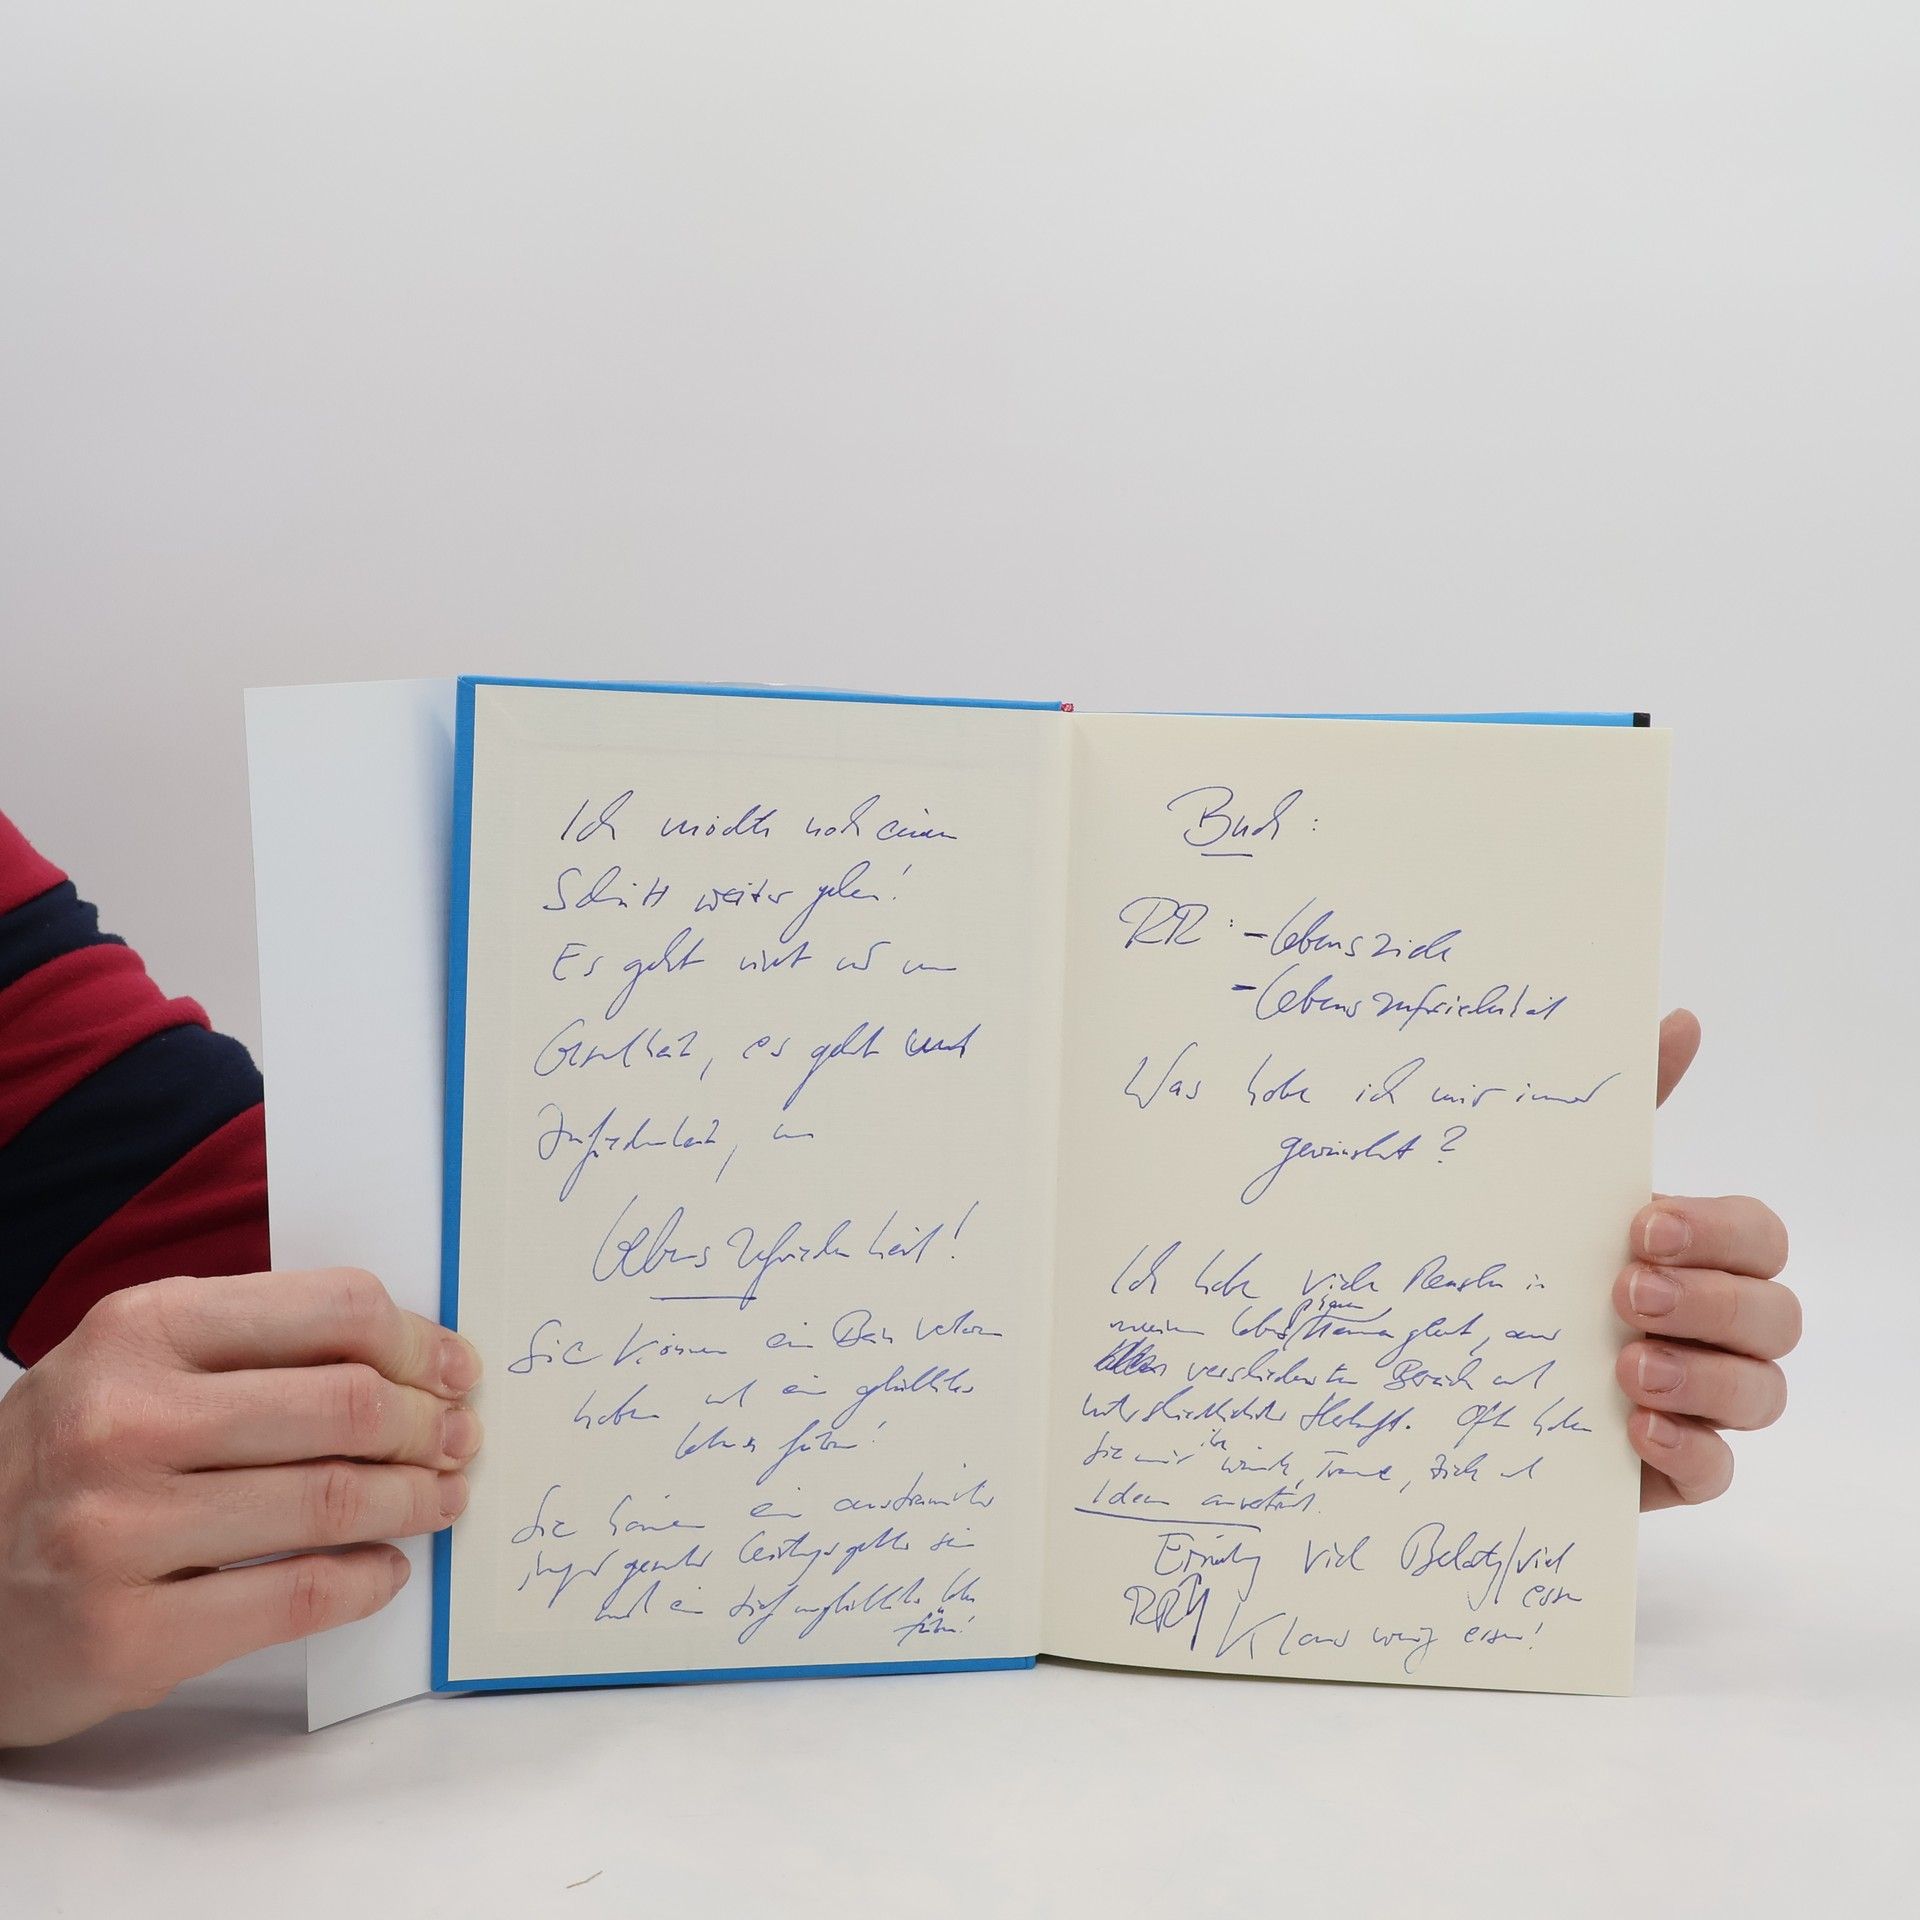 Ich möchte noch einen
Schritt weiter gehen!
Es geht nicht nur um
Gesundheit, es geht um
Zufriedenheit, um
Lebenszufriedenheit!
Sie können ein Bein verloren
haben und ein glückliches
Leben führen!
Sie können ein austrainierter
junger gesunder sein
und ein tief unglückliches Leben
führen!
Buch:
RR: - Lebensziele
- Lebenszufriedenheit
Was habe ich mir immer
gewünscht?
Ich habe viele Menschen in
meinem Leben kennen gelernt, aus
verschiedensten Bereichen und
unterschiedlichster Herkunft. Oft haben
Sie mir ihre Wünsche, Träume, Ziele und
Ideen anvertraut.
viel /viel
essen
RR
Klaus wenig essen!